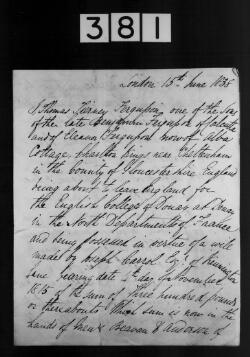 381
London 15th June 1835
I Thomas Tierney Fergusson, one of the Sons
of the late Benjamin Fergusson of Calcutta
and of Eleanor Fergusson now of Alba
Cottage Charlton Kings near Cheltenham
in the County of Gloucestershire England
being about to leave England for
the English College of Douay at Douay
in the North Department of France
and being possessed in virtue of a will
made by Joseph Carrol Esqr of
bearing date day of November
1815 of the Sum of Three hundred pounds
or thereabouts Which sum is now in the
hands of Beavan & Anderson of